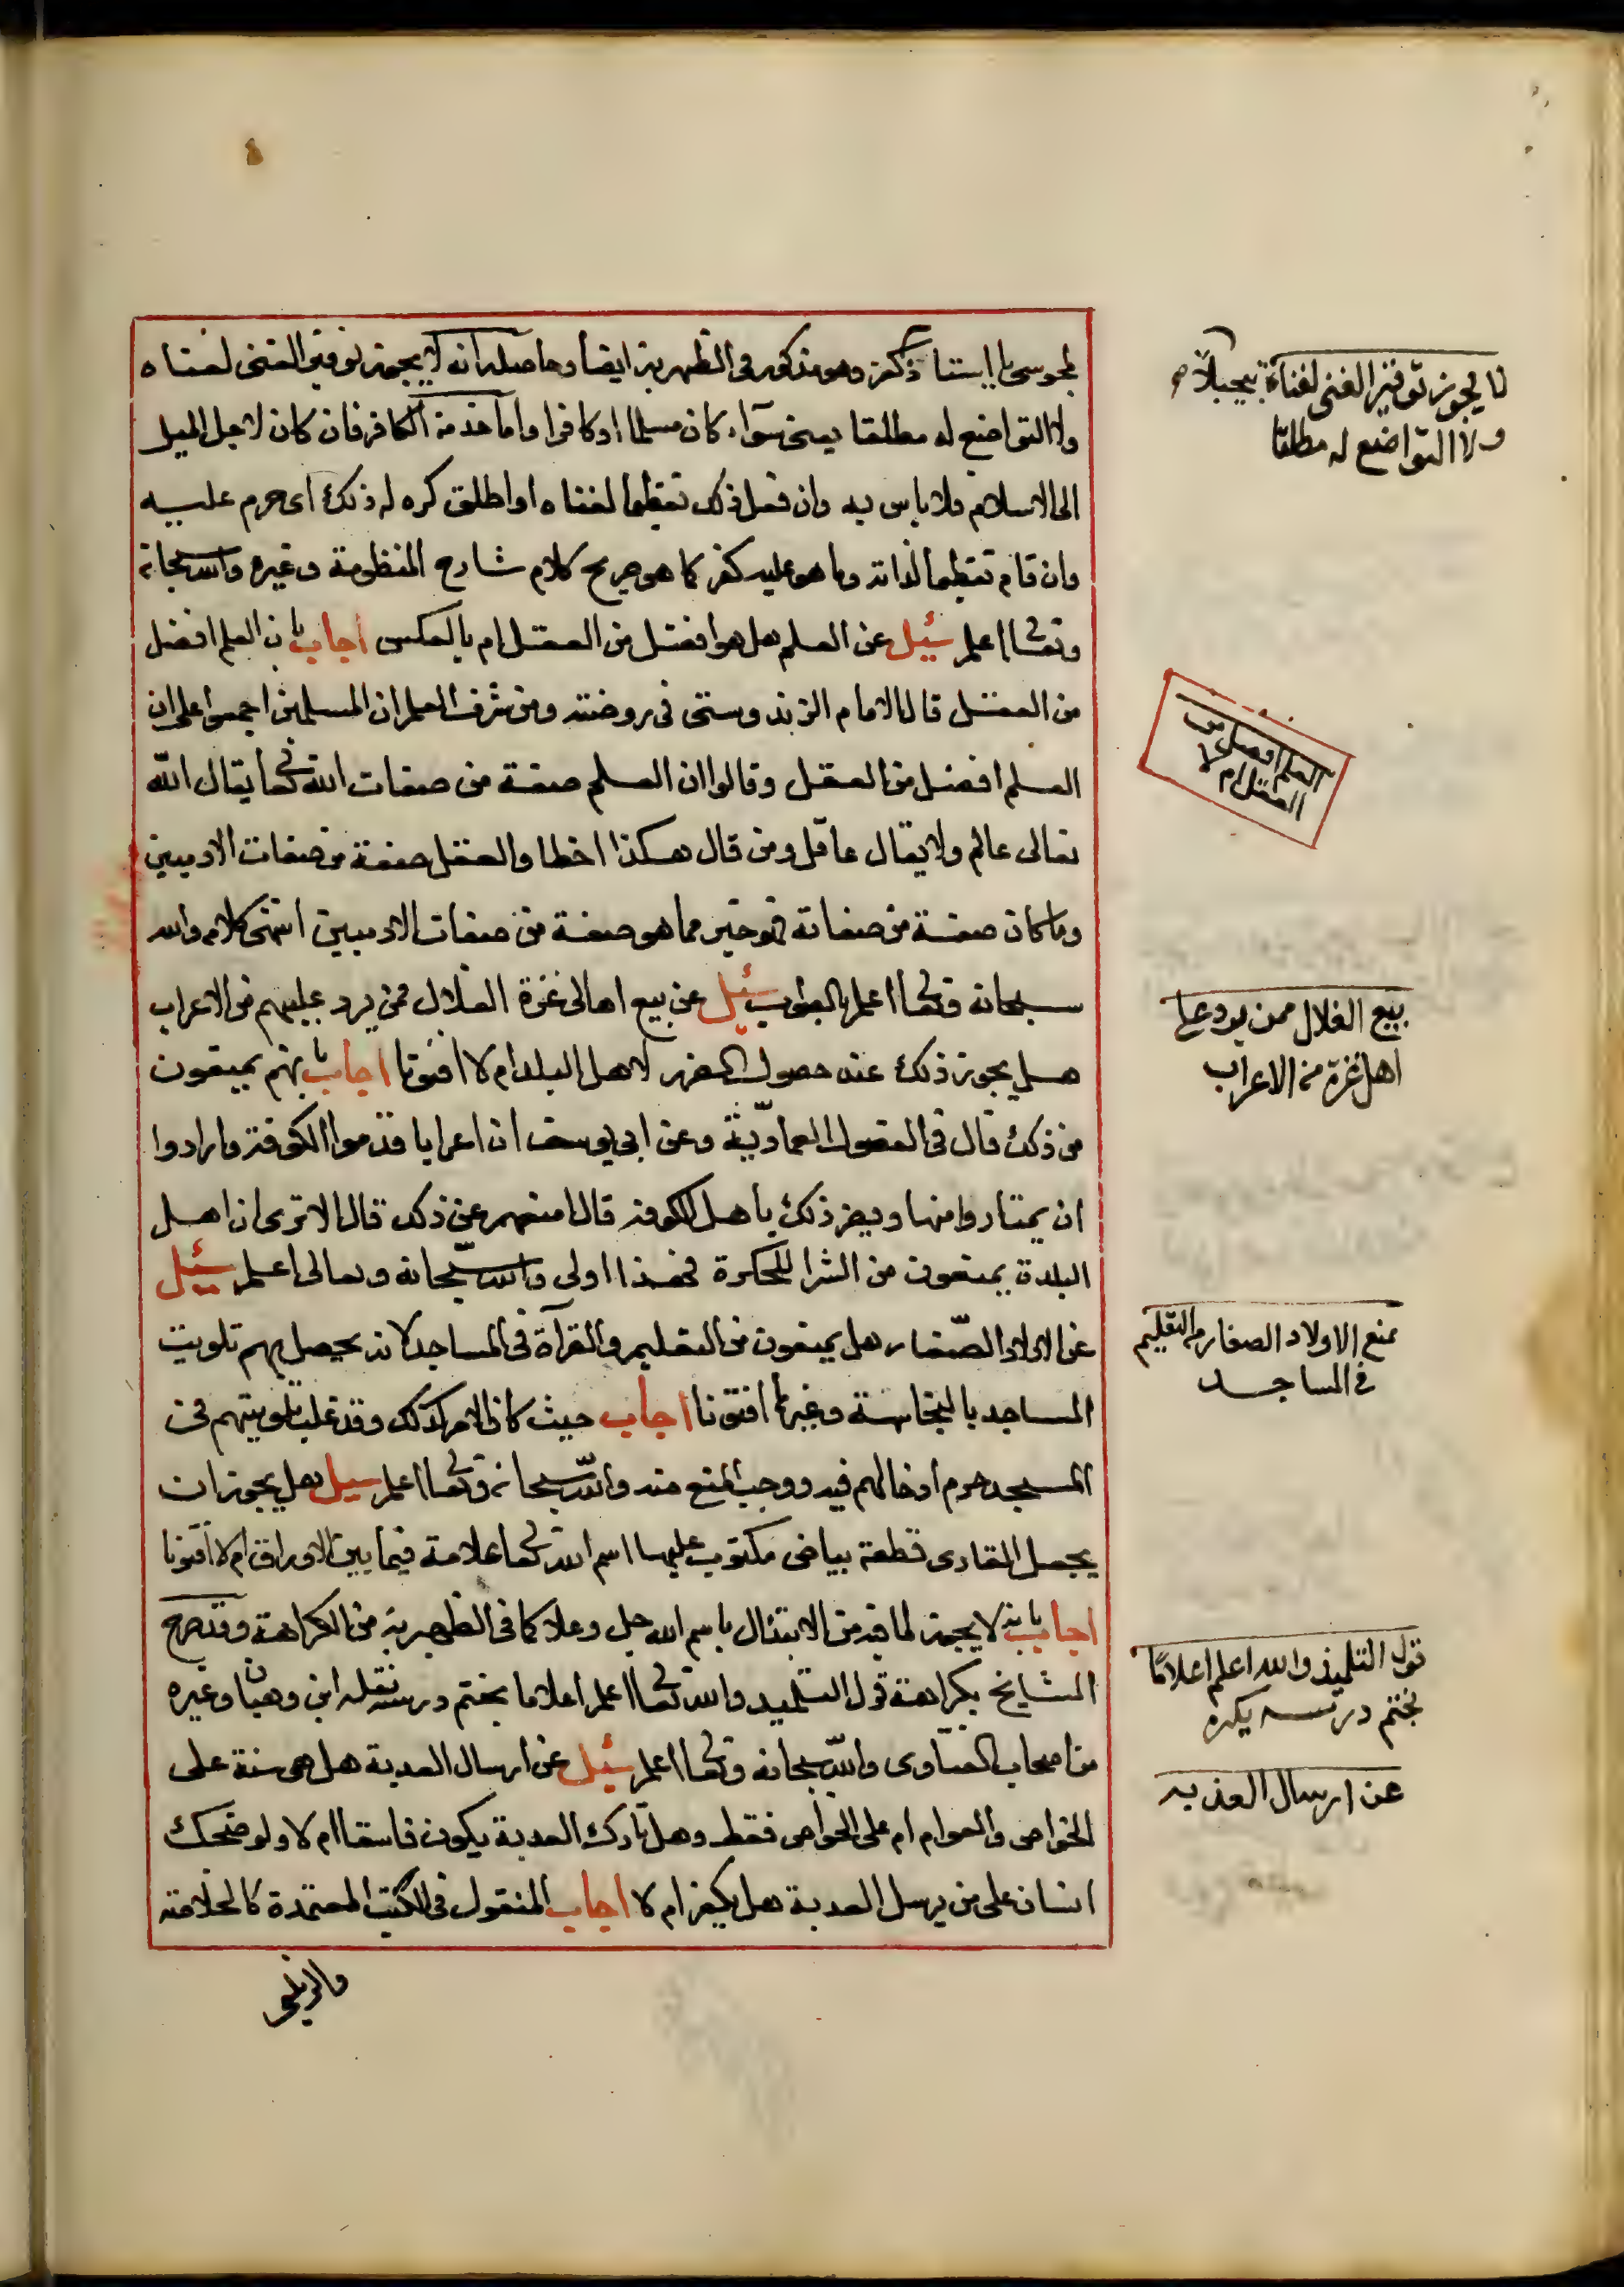 لمجوسي يا استاذ كفر وهو مذكور فى الظهيرية ايضا وحاصله انه لا يجوز توقير الغنى لغناه
ولا التواضع له مطلقا يعنى سوآء كان مسلما او كافرا واما خدمة الكافر فان كان لاجل الميل
الى الاسلام فلا باس به وان فعل ذلك تعظيما لغناه او اطلق كره له ذلك اى حرم عليه
وان قام تعظيما لذاته وما هو عليه كفر كما هو صريح كلام شارح المنظومة وغيره والله سبحانه
وتعالى اعلم سئيل عن العلم هل هو افضل من العقل ام بالعكس اجاب بان العلم افضل
من العقل قال الامام الزندوستى فى روضته ومن شرف العلم ان المسلمين اجمعوا على ان
العلم افضل من العقل وقالوا ان العلم صفة من صفات الله تعالى يقال الله
تعالى عالم ولا يقال عاقل ومن قال هكذا اخطا والعقل صفة من صفات الادميين
وما كان صفة من صفاته فهو خير مما هو صفة من صفات الادميين انتهى كلامه والله
سبحانه وتعالى اعلم بالصواب سئيل عن بيع اهالى غزة الغلال ممن يرد عليهم من الاعراب
هل يجوز ذلك عند حصول الضرر لاهل البلد ام لا افتونا اجاب بانهم يمنعون
من ذلك قال فى الفصول العمادية وعن ابى يوسف ان اعرابا قدموا الكوفة وارادوا
ان يمتاروا منها ويضر ذلك باهل الكوفة قال امنعهم عن ذلك قال الا ترى ان اهل
البلدة يمنعون من الشرا للحكرة فهذا اولى والله سبحانه وتعالى اعلم سئيل
عن الاولاد الصغار هل يمنعون من التعليم والقرآة فى المساجد لانه يحصل بهم تلويث
المساجد بالنجاسة وغيرها افتونا اجاب حيث كان الامر كذلك وقد غلب تلويثهم فى
المسجد حرم ادخالهم فيه ووجب المنع منه والله سبحانه وتعالى اعلم سيل هل يجوز ان
يجعل القارى قطعة بياض مكتوب عليها اسم الله تعالى علامة فيما بين الاوراق ام لا افتونا
اجاب بانه لا يجوز لما فيه من الابتذال باسم الله جل وعلا كما فى الظهيرية من الكراهة وقد صرح
المشايخ بكراهة قول التلميد والله تعالى اعلم اعلاما بختم درسه نقله ابن وهبان وغيره
من اصحاب الفتاوى والله سبحانه وتعالى اعلم سئيل عن ارسال العدبة هل هى سنة على
الخواص والعوام ام على الخواص فقط وهل تارك العدبة يكون فاسقا ام لا ولو ضحك
انسان على من يرسل العدبة هل يكفر ام لا اجاب المنقول فى الكتب المعتمدة كالخلاصة
والزيلعى
لا يجوز توقير الغنى لغناه تبجيلا
ولا التواضع له مطلقا
العلم افضل من
العقل ام لا
بيع الغلال ممن يرد على
اهل غزة من الاعراب
يمنع الاولاد الصغار من التعليم
فى المساجد
قول التلميذ والله اعلم اعلاما
بختم درسه يكره
عن ارسال العذبه